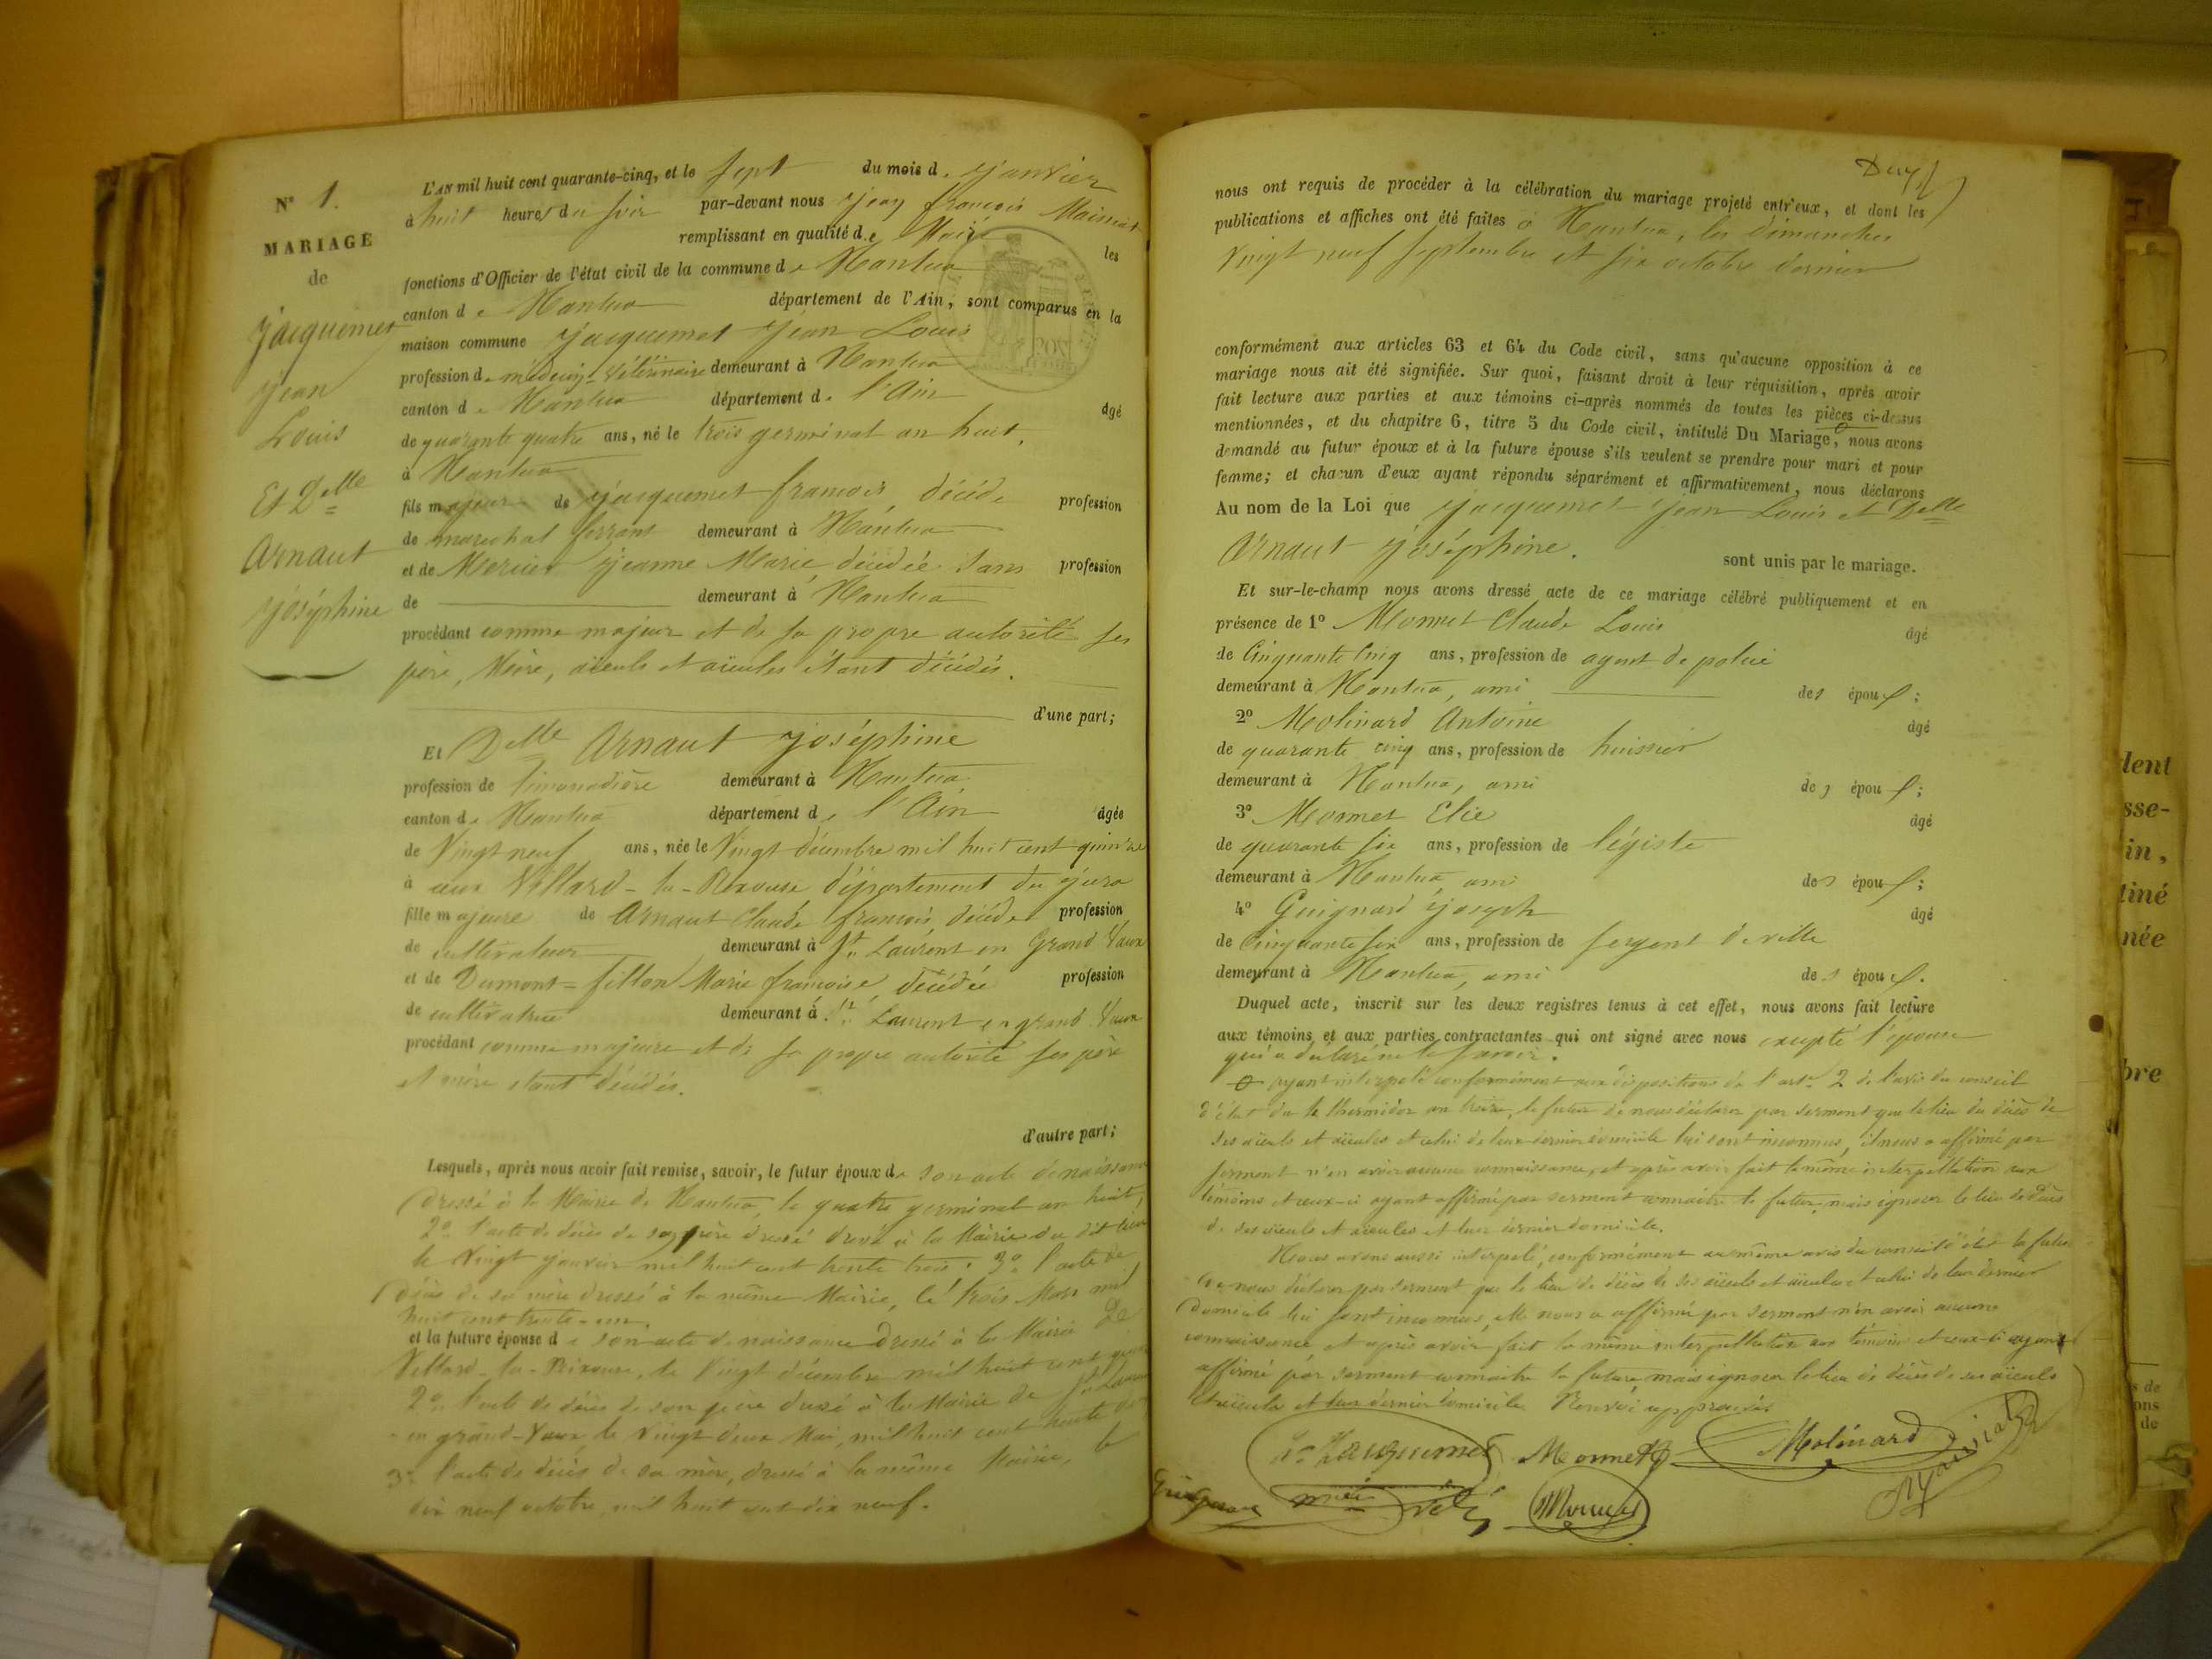 N° 1.
MARIAGE
de
Jacquemet
Jean
Louis
Et Delle
Arnaut
Joséphine
L'AN mil huit cent quarante-cinq, et le sept du mois de Janvier
à huit heures du soir par-devant nous Jean françois Maissiat
remplissant en qualité de Maire les
fonctions d'Officier de l'état civil de la commune de Nantua
canton de Nantua département de l'Ain, sont comparus en la
maison commune Jacquemet Jean Louis
profession de médecin-vétérinaire demeurant à Nantua
canton de Nantua département de l'Ain âgé
de quarante quatre ans, né le trois germinal an huit,
à Nantua
fils majeur de Jacquemet francois décédé profession
de marechal ferrant demeurant à Nantua
et de Mercier Jeanne Marie, décédée sans profession
de demeurant à Nantua
procédant comme majeur et de sa propre autorité ses
père, Mère, aïeuls et aïeules étant décédés.
d'une part;
Et Delle Arnaut Joséphine
profession de limonadière demeurant à Nantua
canton de Nantua département de l'Ain âgée
de Vingt neuf ans, née le Vingt décembre mil huit cent quinze
à aux Villard-la-Rixouse département du Jura
fille majeure de Arnaut Claude francois, décédé profession
de cultivateur demeurant à St Laurent en Grand Vaux
et de Dumont-fillon Marie francoise décédée profession
de cultivatrice demeurant à St Laurent en grand Vaux
procédant comme majeure et de sa propre autorité ses père
et mère étant décédés.
d'autre part;
Lesquels, après nous avoir fait remise, savoir, le futur époux de son acte de naissance
dressé à la Mairie de Nantua, le quatre germinal an huit,
2° l'acte de décès de son père dressé à la Mairie du dit lieu
le Vingt Janvier mil huit cent trente trois. 3° l'acte de
décès de sa mère dressé à la même Mairie, le trois Mars mil
huit cent trente-un.
et la future épouse de son acte de naissance dressé à la Mairie de
Villard-la-Rixouse, le Vingt décembre mil huit cent quinze
2° l'acte de décès de son père dressé à la Mairie de St Laurent
en grand-Vaux le Vingt deux Mai, mil huit cent trente
3° l'acte de décès de sa mère, dressé à la même Mairie, le
dix neuf octobre, mil huit cent dix neuf.
nous ont requis de procéder à la célébration du mariage projeté entr'eux, et dont les
publications et affiches ont été faites à Nantua, les dimanches
Vingt neuf septembre et six octobre dernier
conformément aux articles 63 et 64 du Code civil, sans qu'aucune opposition à ce
mariage nous ait été signifiée. Sur quoi, faisant droit à leur réquisition, après avoir
fait lecture aux parties et aux témoins ci-après nommés de toutes les pièces ci-dessus
mentionnées, et du chapitre 6, titre 5 du Code civil, intitulé Du Mariage, nous avons
demandé au futur époux et à la future épouse s'ils veulent se prendre pour mari et pour
femme; et chacun d'eux ayant répondu séparément et affirmativement, nous déclarons
Au nom de la Loi que Jacquemet Jean Louis et Delle
Arnaut Joséphine. sont unis par le mariage.
Et sur-le-champ nous avons dressé acte de ce mariage célébré publiquement et en
présence de 1° Mornet Claude Louis âgé
de Cinquante Cinq ans, profession de agent de police
demeurant à Nantua, ami des époux;
2° Molinard Antoine âgé
de quarante cinq ans, profession de huissier
demeurant à Nantua, ami des époux;
3° Mornet Elie âgé
de quarante six ans, profession de légiste
demeurant à Nantua, ami des époux;
4° Guignard Joseph âgé
de Cinquante six ans, profession de sergent de ville
demeurant à Nantua, ami des époux.
Duquel acte, inscrit sur les deux registres tenus à cet effet, nous avons fait lecture
aux témoins et aux parties contractantes qui ont signé avec nous excepté l'épouse
qui a déclaré ne le savoir.
ayant interpelé conformément aux dispositions de l'art. 2 de l'avis du conseil
d'état du 4e thermidor an treize, le futur de nous déclarer par serment que le lieu du décès de
ses aïeuls et aïeules et celui de leur dernier domicile lui sont inconnus, il nous a affirmé par
serment n'en avoir aucune connaissance, et après avoir fait la même interpellation aux
témoins et ceux-ci ayant affirmé par serment connaître le futur, mais ignorer le lieu de décès
de ses aïeuls et aïeules et leur dernier domicile.
Nous avons aussi interpelé, conformément au même avis du conseil d'état la future
de nous déclarer par serment que le lieu de décès de ses aïeuls et aïeules et celui de leur dernier
domicile lui sont inconnus, elle nous a affirmé par serment n'en avoir aucune
connaissance et après avoir fait la même interpellation aux témoins et ceux-ci ayant
affirmé par serment connaître la future mais ignorer le lieu de décès de ses aïeuls
et aïeules et leur dernier domicile. Renvoi approuvé
Jacquemet Mornet Molinard Maissiat
Guignard Mornet
dent
sse-
in,
tiné
née
bre